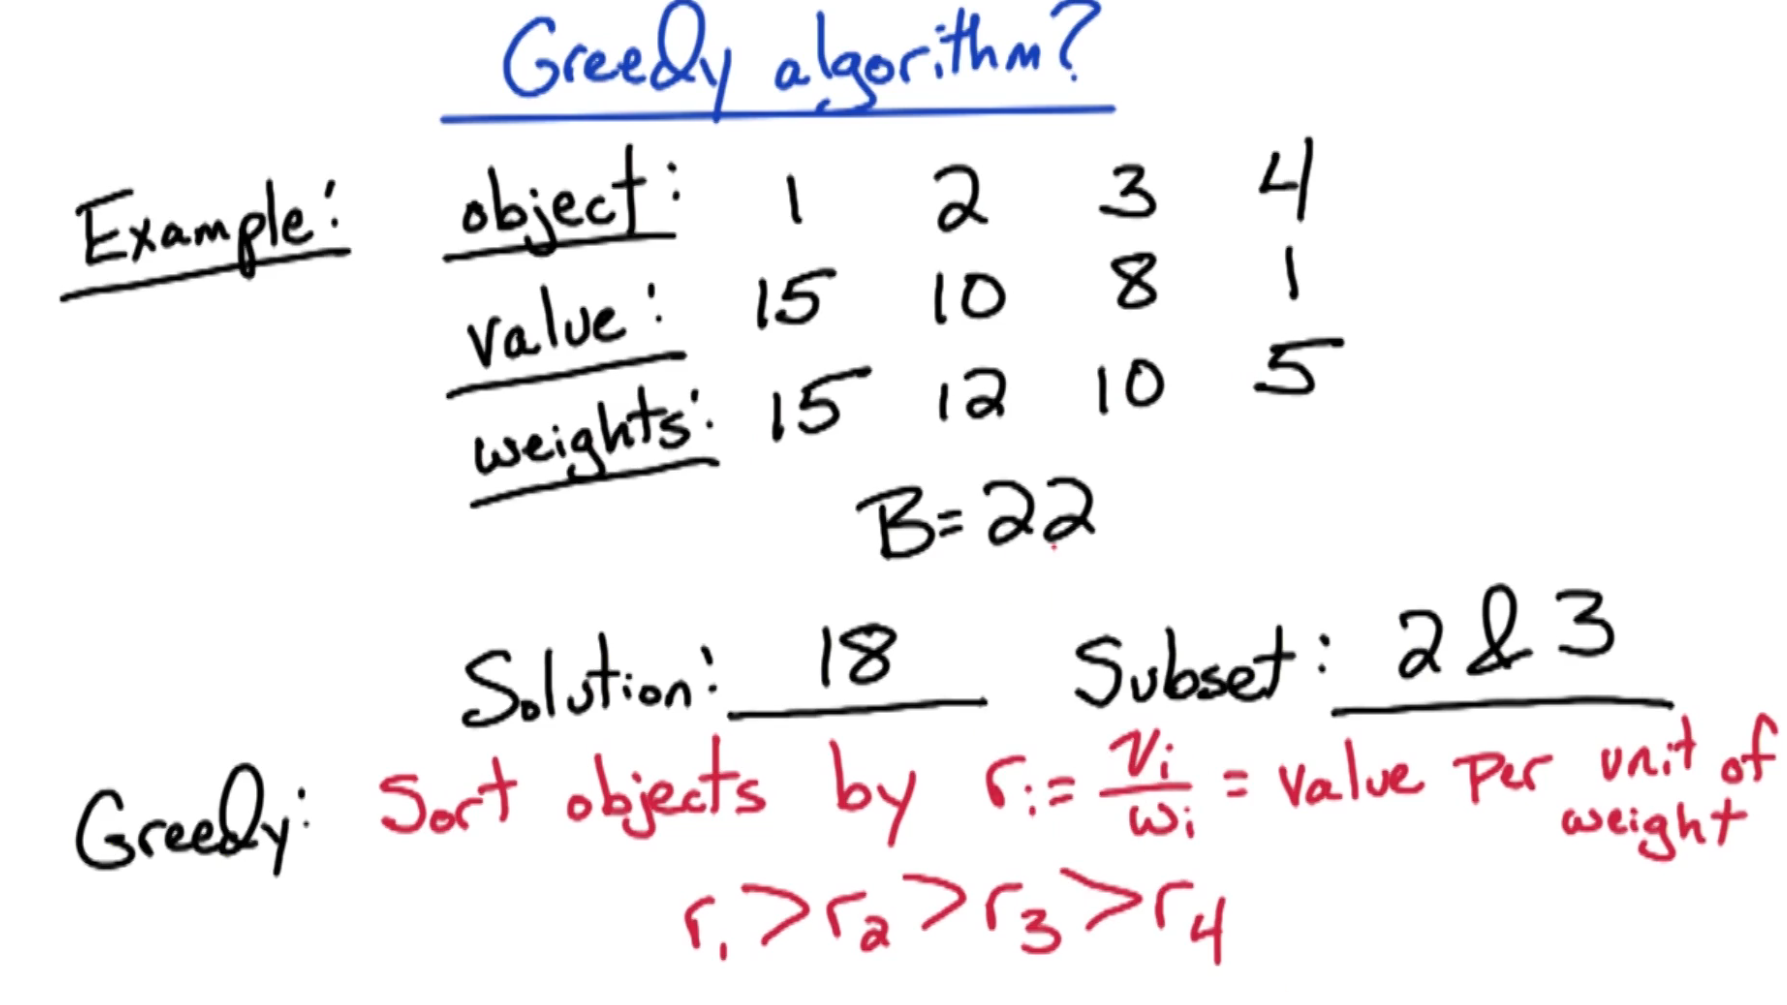 Greedy algorithm?
Example: object: 1 2 3 4
value: 15 10 8 1
weights: 15 12 10 5
B=22
Solution: 18 Subset: 2 & 3
Greedy: Sort objects by rᵢ = vᵢ/wᵢ = value per unit of weight
r₁ > r₂ > r₃ > r₄